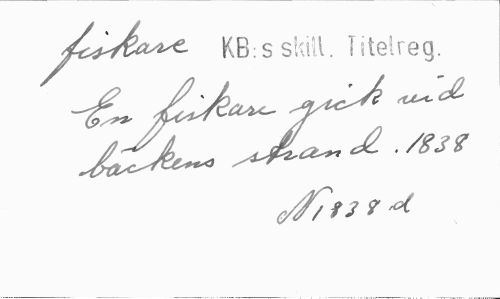 fiskare KB:s skill. Titelreg.
En fiskare gick vid
bäckens strand. 1838
N1838d